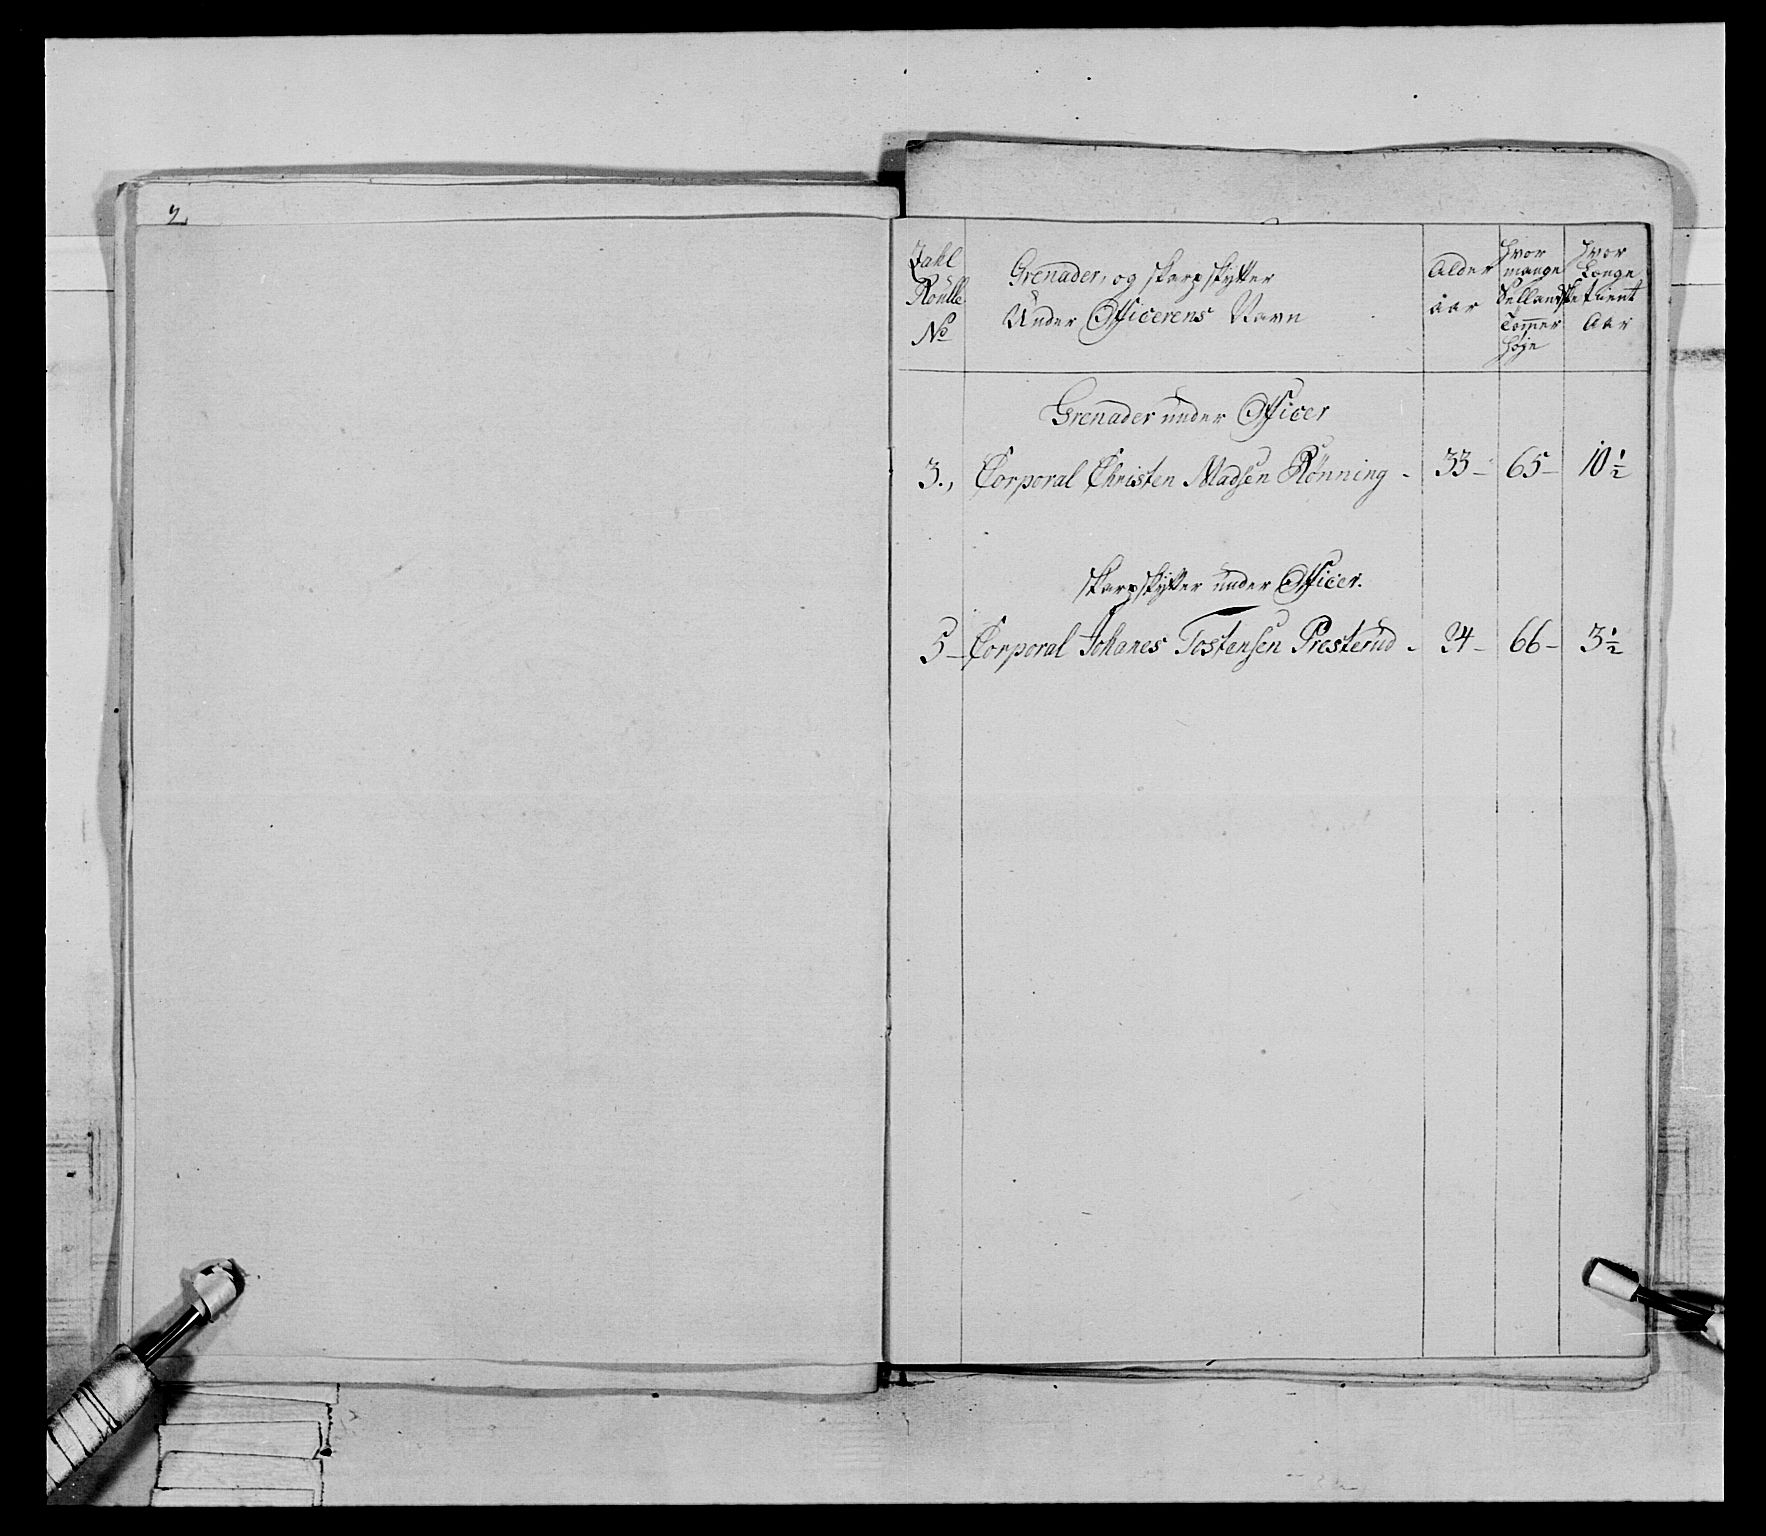 2
Zahl Roulle No | Grenader, og skarpskytter Under Officerens Navn | Alder aar | Hvor mange Sellandske Tommer Høje | Hvor Længe tient Aar
Grenader under Officer
3., Corporal Christen Madsen Rønning - 33 - 65 - 10 1/2
skarpskytter under Officer.
5 - Corporal Johanes Tostensen Presterud - 24 - 66 - 3 1/2